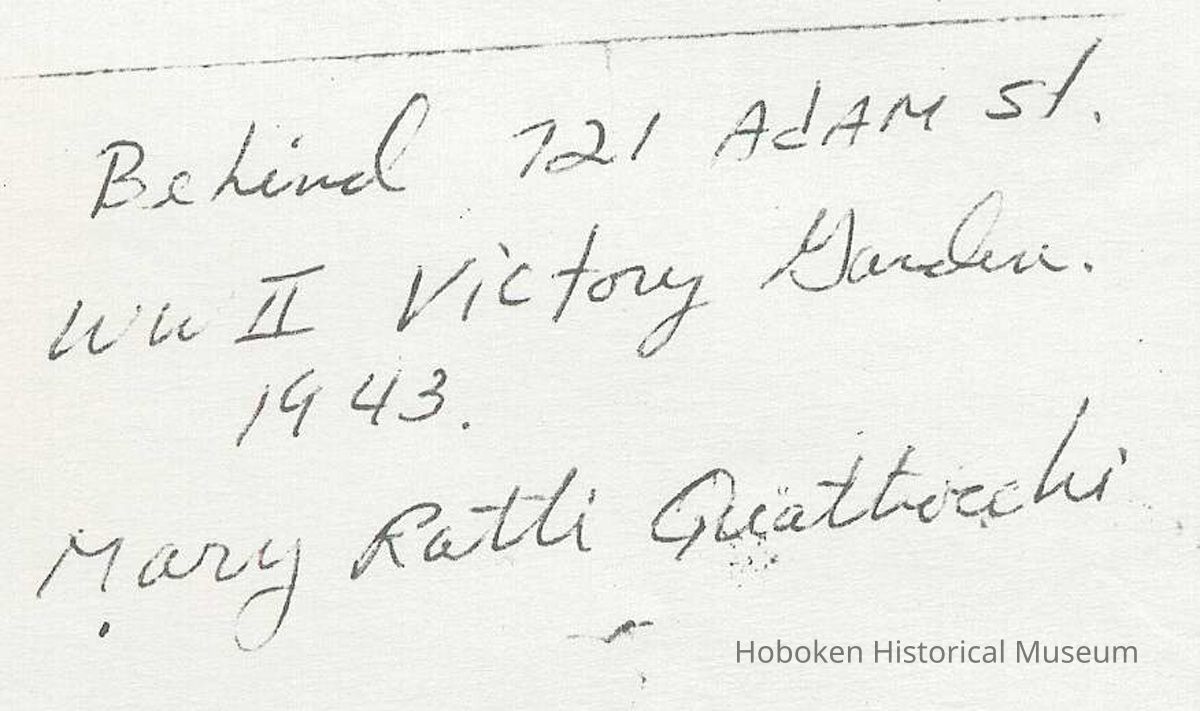 Behind 721 AdAM St.
WW II Victory Garden.
1943.
Mary Ratti Quattrocchi
Hoboken Historical Museum